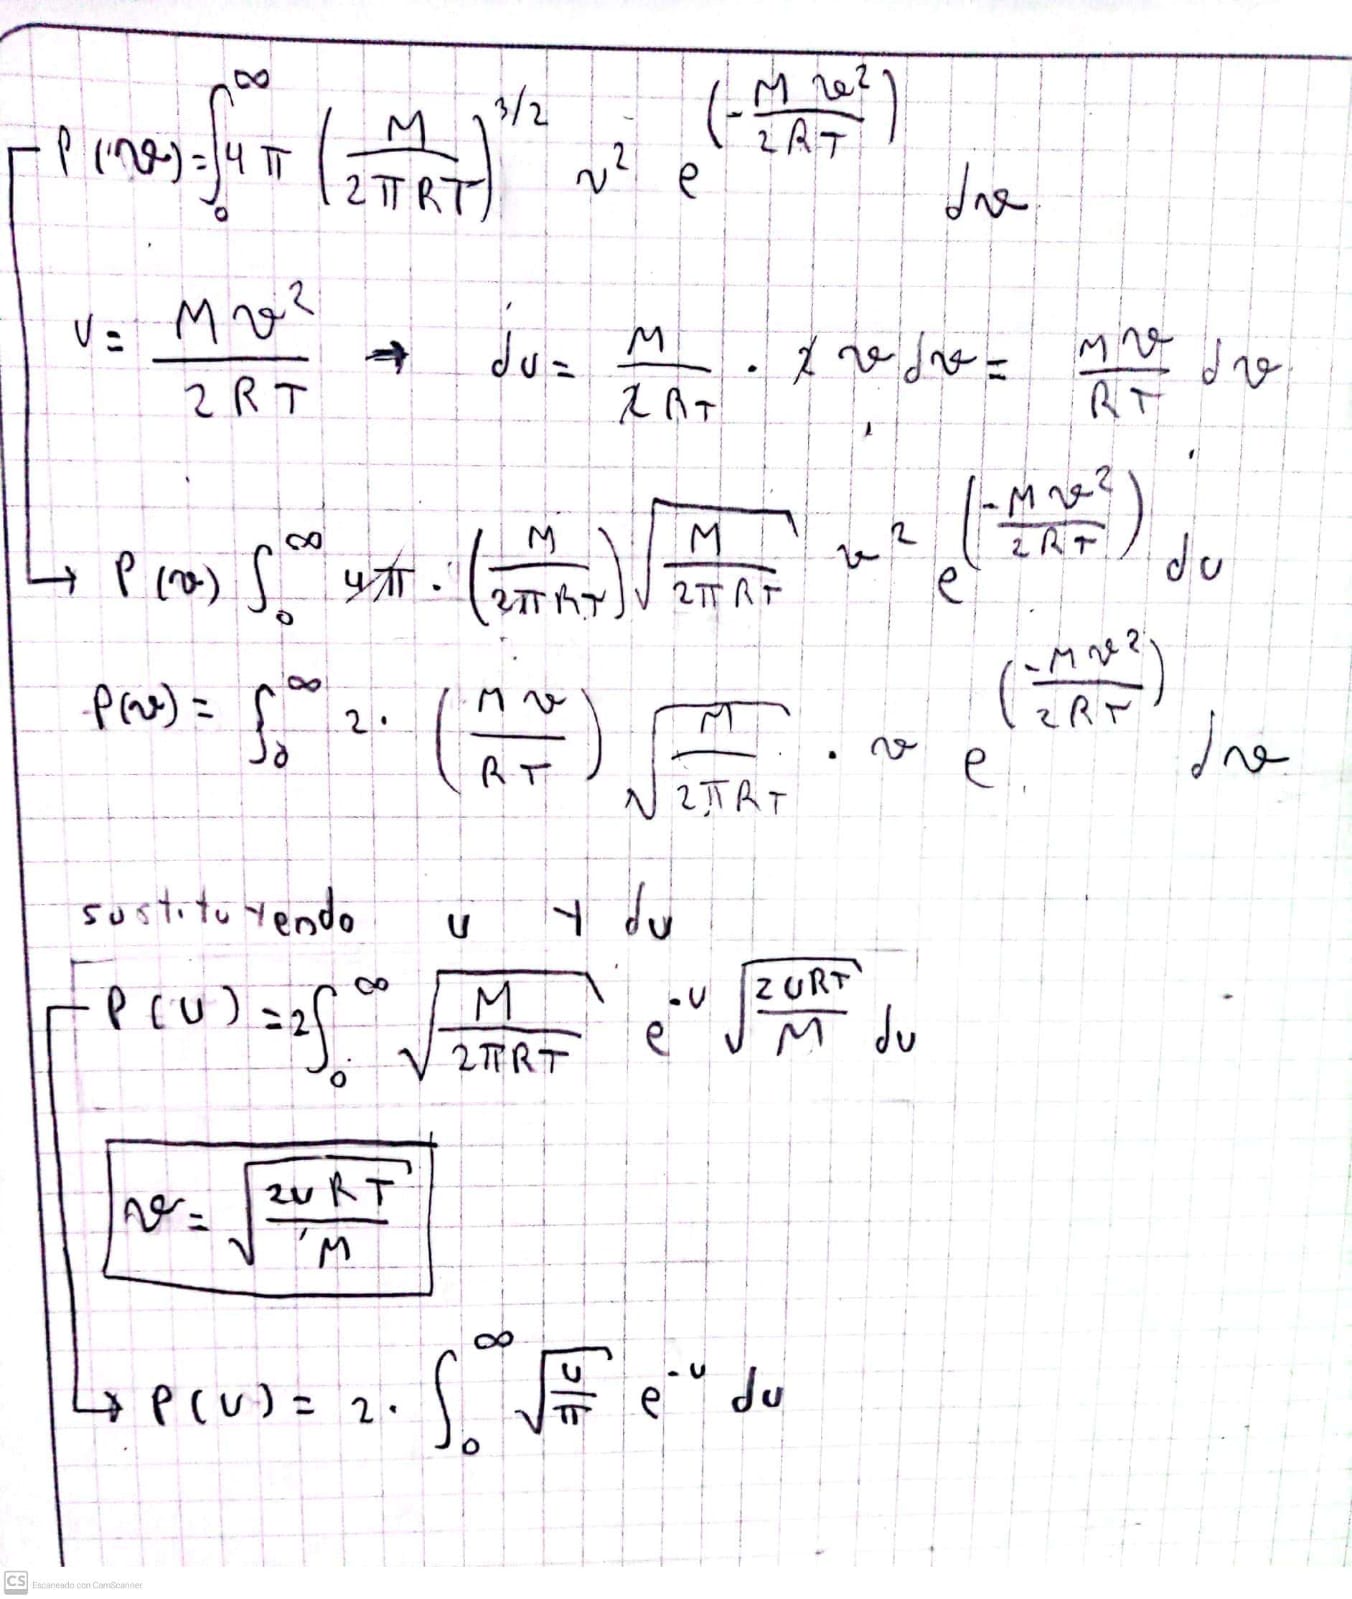 P(v) = ∫₀^∞ 4π (M / 2πRT)^{3/2} v² e^{(-Mv² / 2RT)} dv
u = Mv² / 2RT → du = M / 2RT · 2 v dv = Mv / RT dv
→ P(v) ∫₀^∞ 4π · (M / 2πRT) √(M / 2πRT) v² e^{(-Mv² / 2RT)} du
P(v) = ∫₀^∞ 2 · (Mv / RT) √(M / 2πRT) · v e^{(-Mv² / 2RT)} dv
sustituyendo u y du
P(u) = 2∫₀^∞ √(M / 2πRT) e^{-u} √(2uRT / M) du
v = √(2uRT / M)
→ P(u) = 2 · ∫₀^∞ √(u / π) e^{-u} du
CS Escaneado con CamScanner